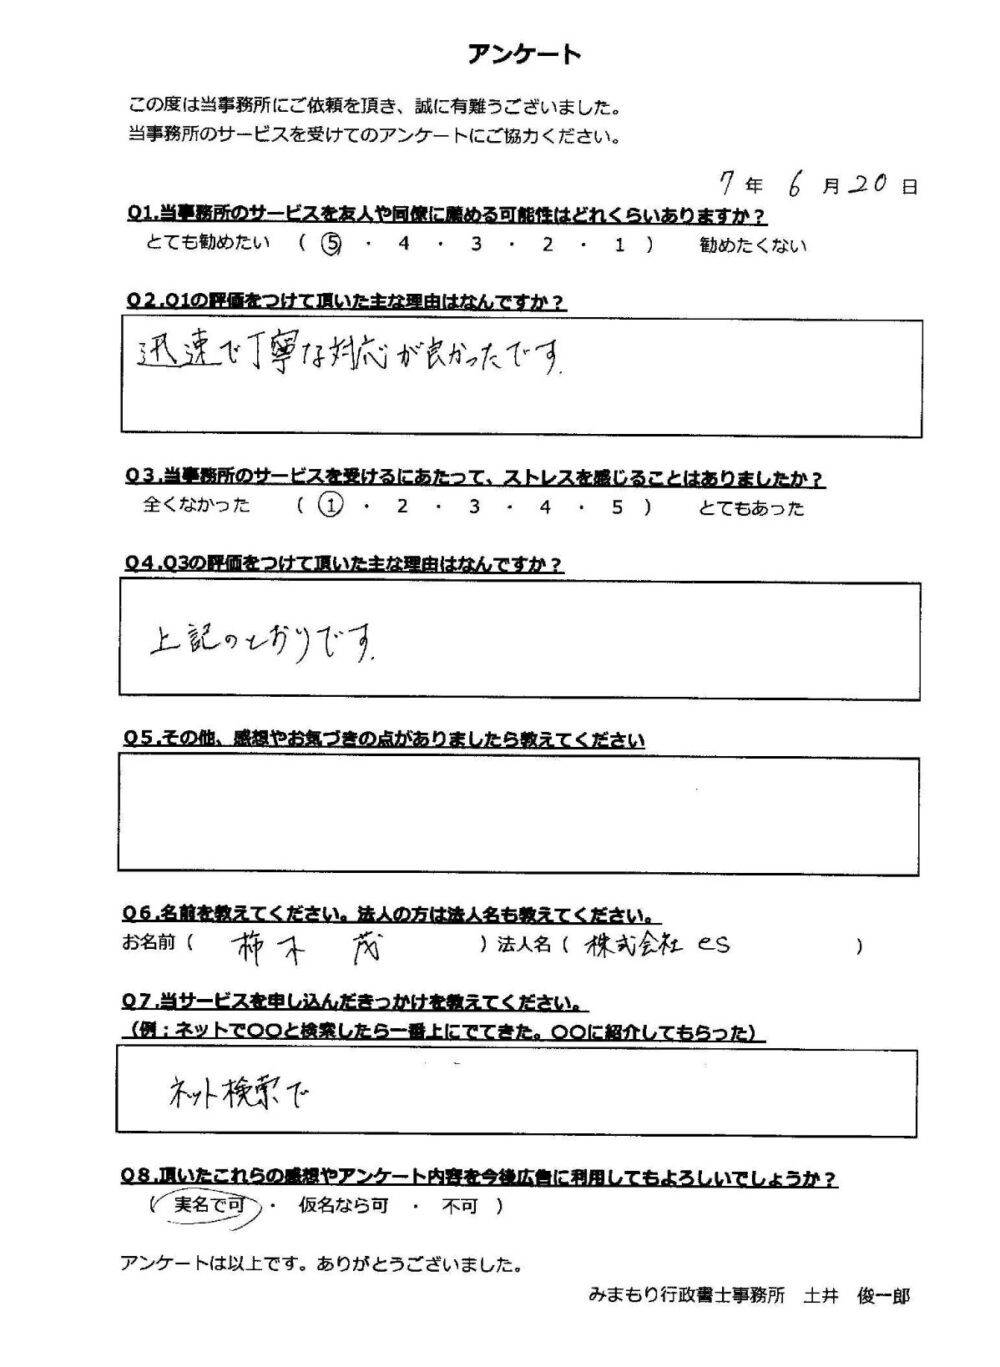 アンケート
この度は当事務所にご依頼を頂き、誠に有難うございました。
当事務所のサービスを受けてのアンケートにご協力ください。
7年 6月20日
Q1.当事務所のサービスを友人や同僚に薦める可能性はどれくらいありますか？
とても勧めたい （ ⑤ ・ 4 ・ 3 ・ 2 ・ 1 ） 勧めたくない
Q2.Q1の評価をつけて頂いた主な理由はなんですか？
迅速で丁寧な対応が良かったです.
Q3.当事務所のサービスを受けるにあたって、ストレスを感じることはありましたか？
全くなかった （ ① ・ 2 ・ 3 ・ 4 ・ 5 ） とてもあった
Q4.Q3の評価をつけて頂いた主な理由はなんですか？
上記のとおりです.
Q5.その他、感想やお気づきの点がありましたら教えてください
Q6.名前を教えてください。法人の方は法人名も教えてください。
お名前（ 柿木 茂 ）法人名（ 株式会社 es ）
Q7.当サービスを申し込んだきっかけを教えてください。
（例：ネットで〇〇と検索したら一番上にでてきた。〇〇に紹介してもらった）
ネット検索で
Q8.頂いたこれらの感想やアンケート内容を今後広告に利用してもよろしいでしょうか？
（ 実名で可 ・ 仮名なら可 ・ 不可 ）
アンケートは以上です。ありがとうございました。
みまもり行政書士事務所 土井 俊一郎